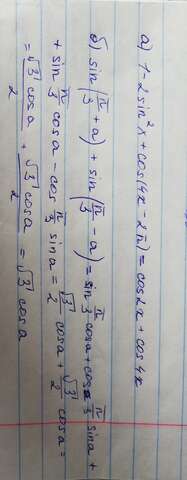 а) 1-2sin²x+cos(4x-2π)=cos2x+cos4x
б) sin(π/3+a)+sin(π/3-a)=sin π/3 cosa+cos π/3 sina+
+sin π/3 cosa-cos π/3 sina=√3/2 cosa+√3/2 cosa=
=√3cosa/2+√3cosa/2=√3 cosa